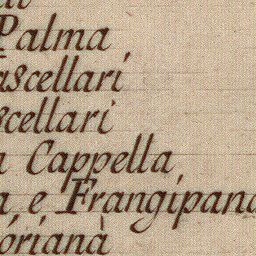 Palma
scellari
scellari
Cappella
e Frangipana